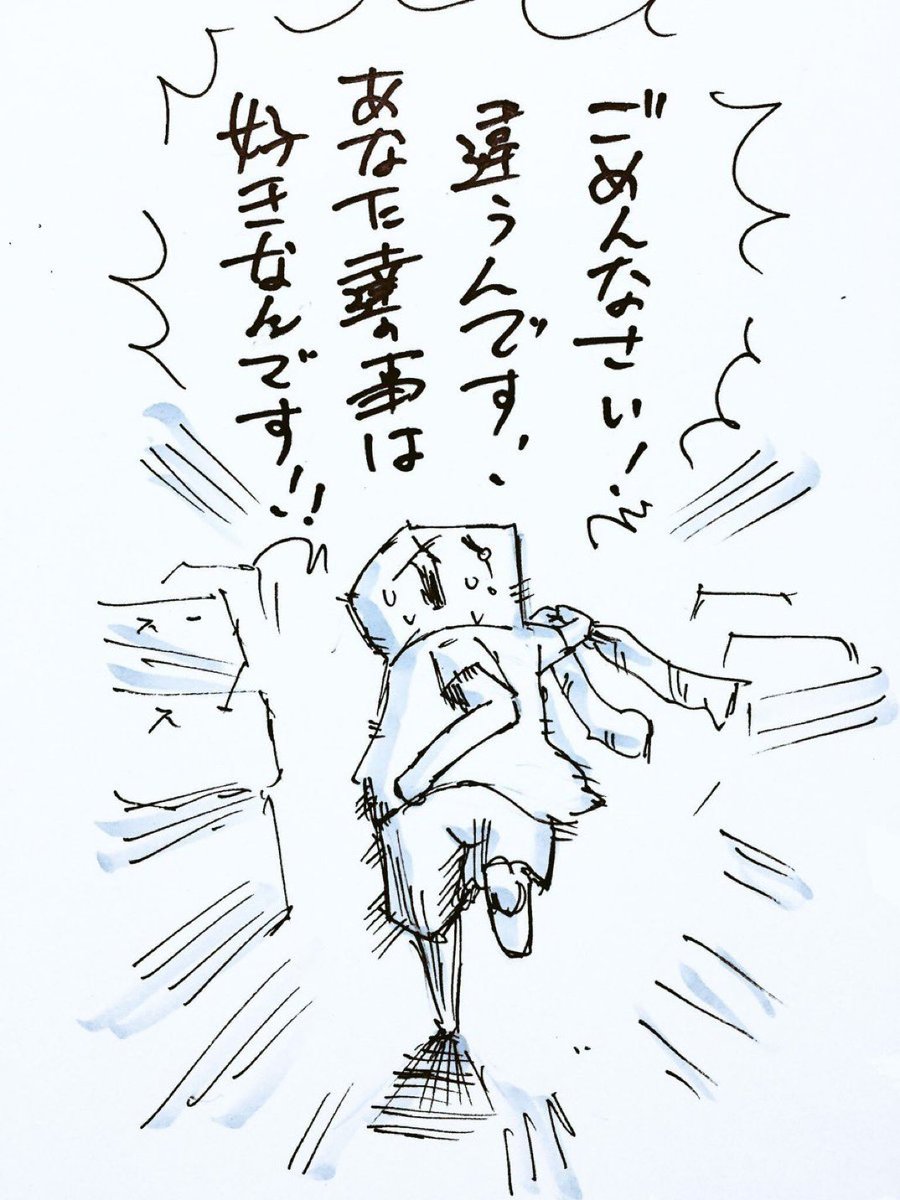 ごめんなさい!
違うんです、
あなた達の事は
好きなんです!!